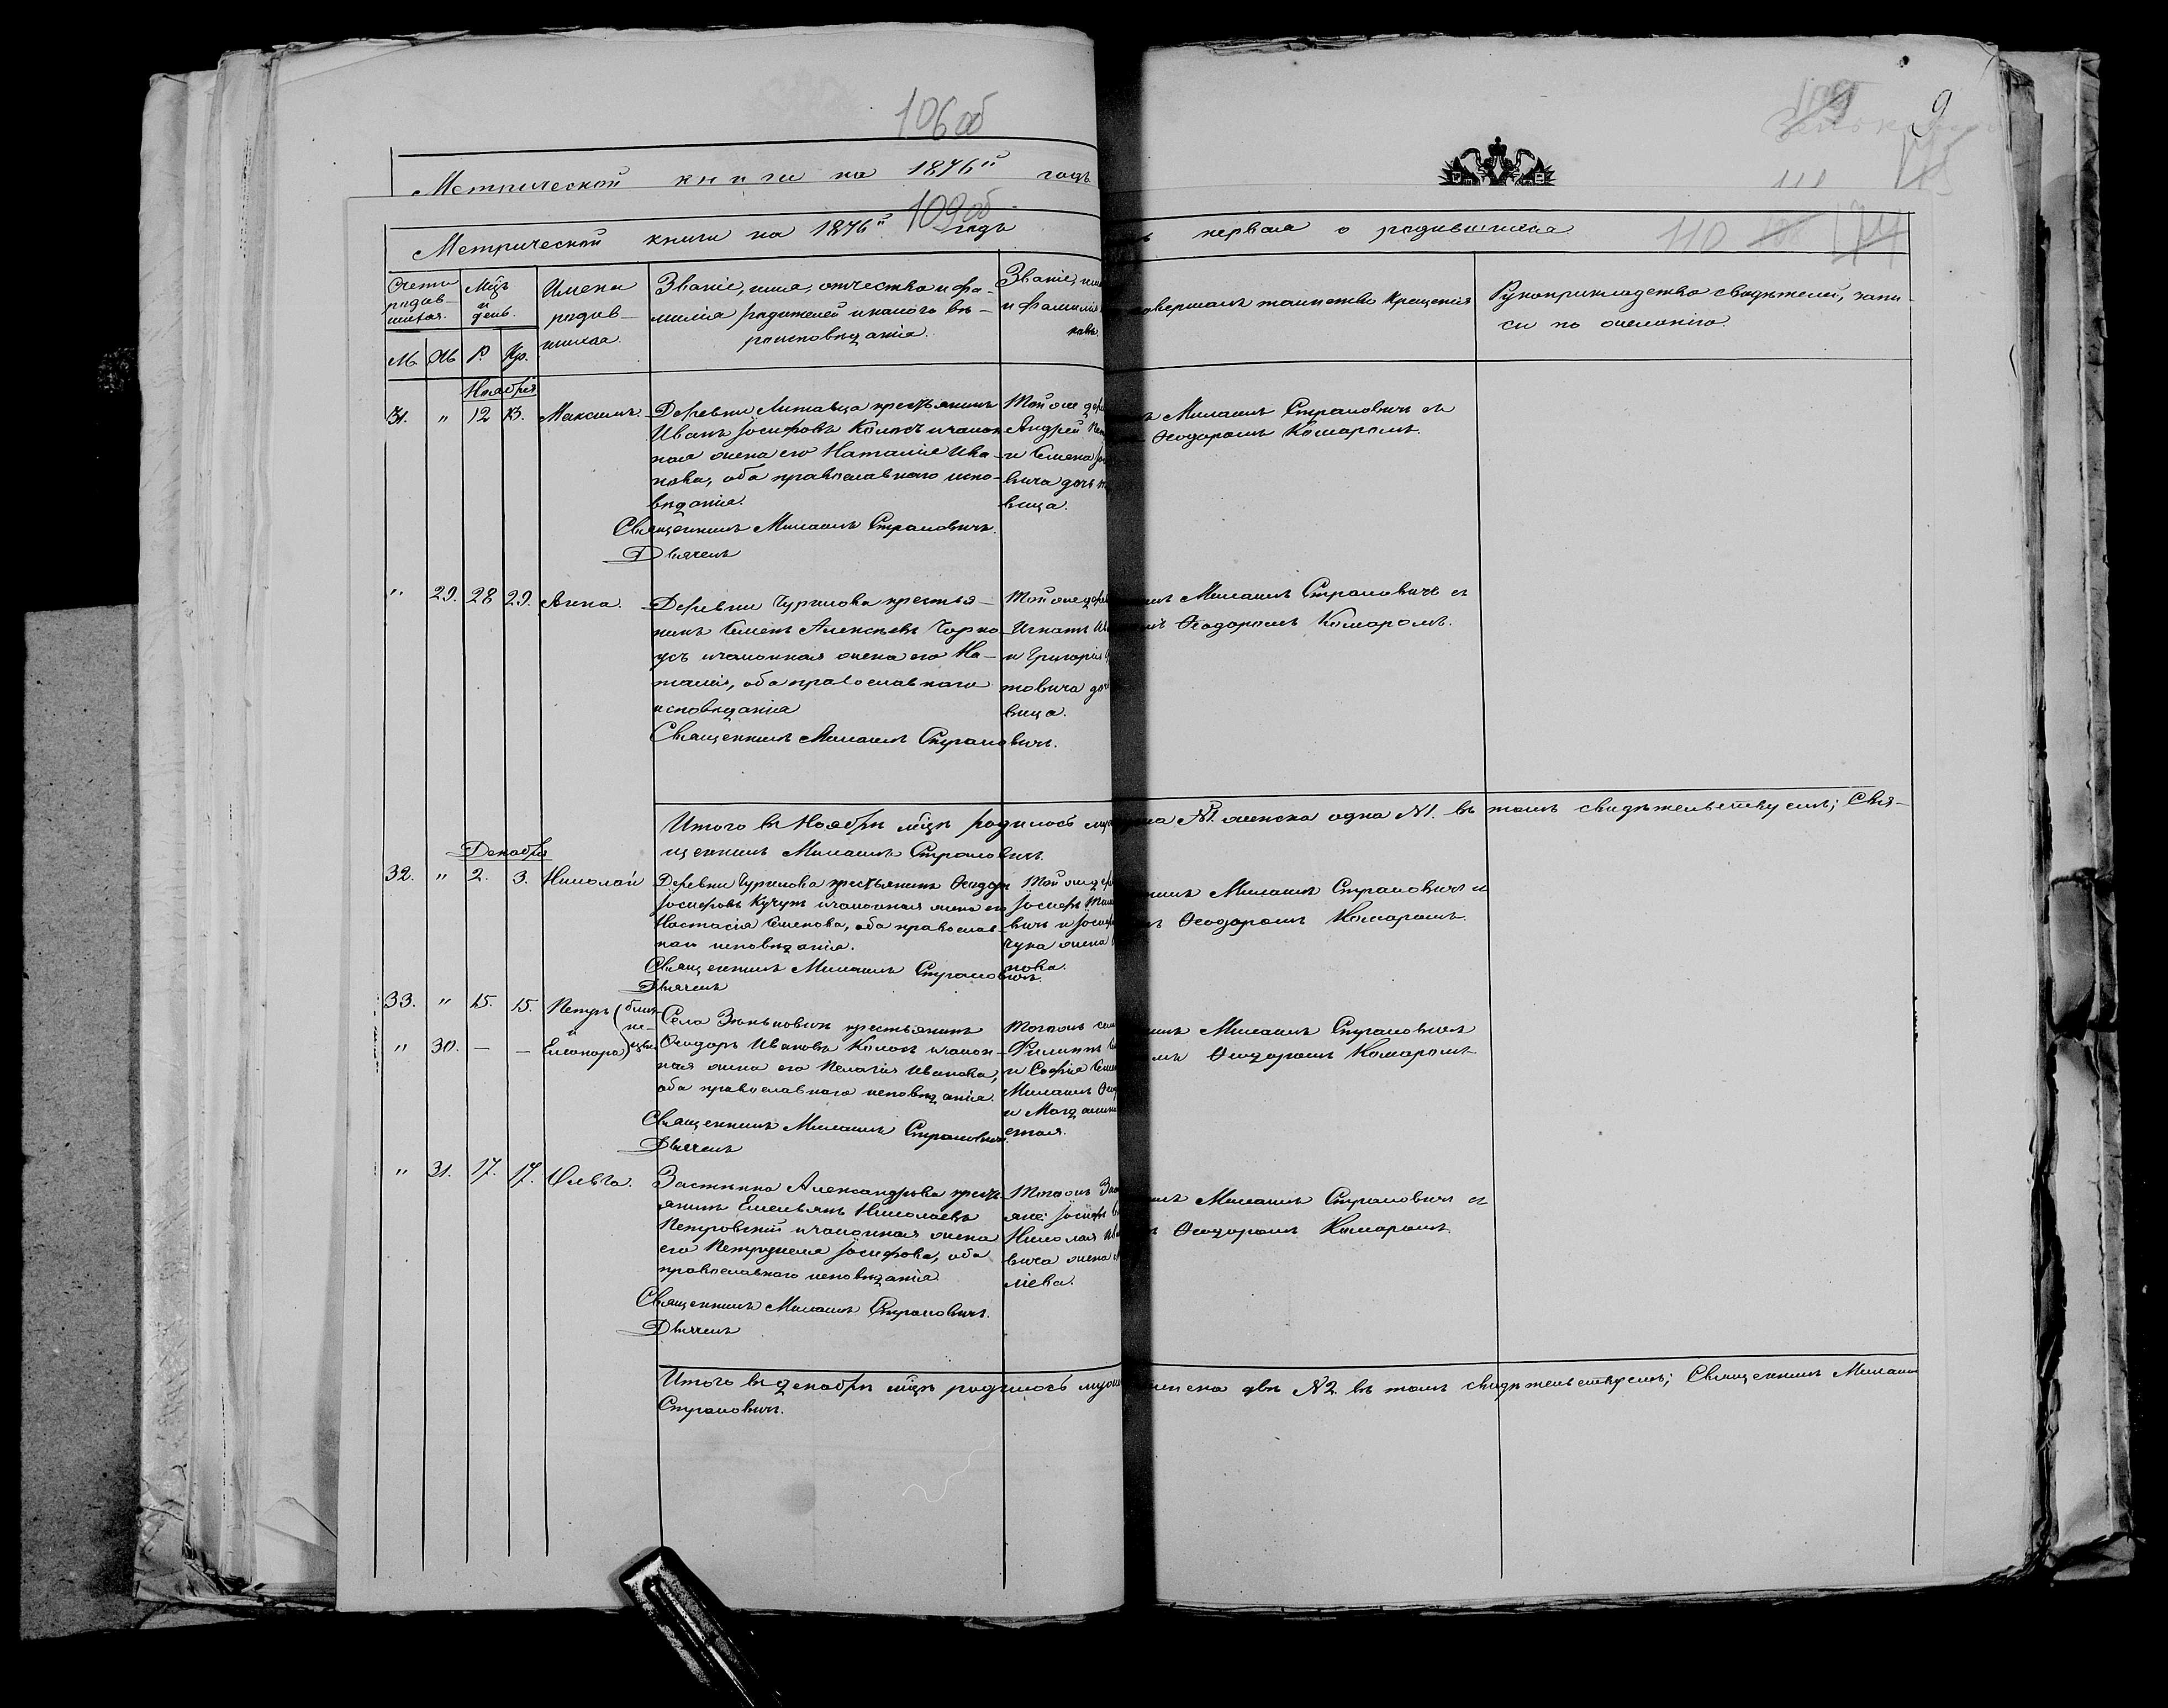 106 об
Метрической книги на 1876й годъ
109 об
Метрической книги на 1876й годъ
первая о родившихся
110
Счетъ родив-шихся.
Мцъ и день.
Имена родив-шихся.
Званіе, имя, отчество и фа-
милія родителей и какого вѣ-
роисповѣданія.
Званіе, имя
и фамилія
ковъ.
совершалъ таинство крещенія
Рукоприкладство свидѣтелей, запи-
си по желанію.
М. Ж. Р. Кр.
Ноября
31. " 12 13. Максимъ.
Деревни Литавца крестьянинъ
Иванъ Іосифовъ Колосъ и закон-
ная жена его Наталія Ива-
нова, оба православнаго испо-
вѣданія.
Священникъ Михаилъ Страховичъ.
Дьячекъ
Той же дер
Андрей
и Семена
вича дочь
вица.
Михаилъ Страховичъ съ
Ѳеодоромъ Комаромъ.
" 29. 28 29. Анна.
Деревни Чурилова крестья-
нинъ Семенъ Алексѣевъ Чарно-
усъ и законная жена его На-
талія, оба православнаго
исповѣданія
Священникъ Михаилъ Страховичъ.
Той же дерев
Игнатъ
и Григорія
товича доч
вица.
Михаилъ Страховичъ съ
Ѳеодоромъ Комаромъ.
Итого въ Ноябрѣ мцѣ родилось муж на №1. женска одна №1. въ томъ свидѣтельствуемъ; Свя-
щенникъ Михаилъ Страховичъ.
Декабря
32. " 2. 3. Николай
Деревни Чурилова крестьянинъ Ѳеодоръ
Іосифовъ Кучукъ и законная жена его
Настасія Семенова, оба православ-
наго исповѣданія.
Священникъ Михаилъ Страховичъ.
Дьячекъ
Той же дер
Іосифъ
вичъ и Іосиф
чука жена
нова.
Михаилъ Страховичъ съ
Ѳеодоромъ Комаромъ.
33. " 15. 15. Петръ (близ-
и не-
" 30. — — Елеонора) цы.
Села Зѣньковичъ крестьянинъ
Ѳеодоръ Ивановъ Колосъ и закон-
ная жена его Пелагія Иванова,
оба православнаго исповѣданія.
Священникъ Михаилъ Страховичъ.
Дьячекъ
Тогожъ сел
Филиппъ
и Софія Семе
Михаилъ Ѳео
и Магдалина
ская.
Михаилъ Страховичъ
Ѳеодоромъ Комаромъ
" 31. 17. 17. Ольга.
Застѣнка Александрова крестъ-
янинъ Емельянъ Николаевъ
Петровскій и законная жена
его Петрунеля Іосифова, оба
православнаго исповѣданія
Священникъ Михаилъ Страховичъ.
Дьячекъ
Тогожъ Зас
яне: Іосифъ
Николая
вича жена
лѣева.
Михаилъ Страховичъ съ
Ѳеодоромъ Комаромъ
Итого въ декабрѣ мцѣ родилось муже женска двѣ №2. въ томъ свидѣтельствуемъ; Священникъ Михаилъ
Страховичъ.